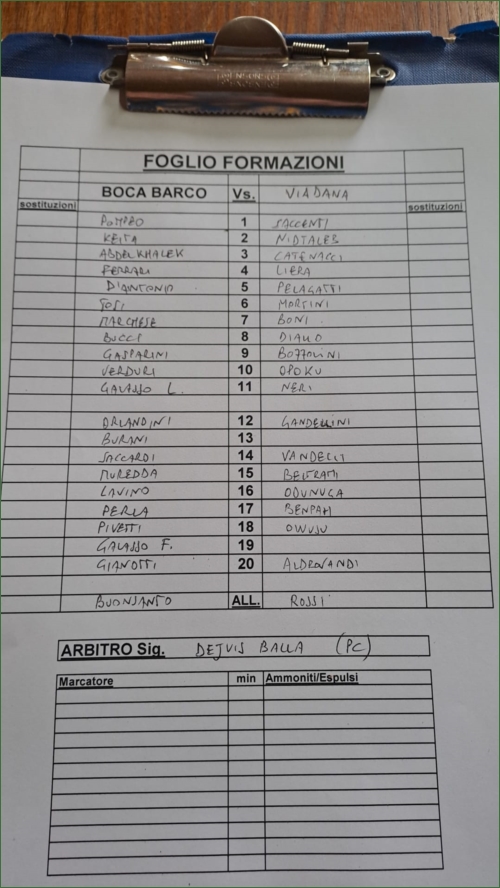 FOGLIO FORMAZIONI
BOCA BARCO Vs. VIADANA
sostituzioni sostituzioni
POMPEO 1 SACCENTI
KEITA 2 NIDTALEB
ABDELKHALEK 3 CATENACCI
FERRARI 4 LIERA
D'ANTONIO 5 PELAGATTI
TOSI 6 MORSINI
MARCHESE 7 BONI
BUCCI 8 DIALLO
GASPARINI 9 BOZZOLINI
VERDURI 10 OPOKU
GALASSO L. 11 NERI
ORLANDINI 12 GANDELLINI
BURANI 13
SACCARDI 14 VANDELLI
MUREDDA 15 BELTRAMI
LAVINO 16 ODUNUGA
PERLA 17
PIVETTI 18 OWUSU
GALASSO F. 19
GIANOTTI 20 ALDROVANDI
BUONSANTO ALL. ROSSI
ARBITRO Sig. DEJVIS BALLA (PC)
Marcatore min Ammoniti/Espulsi